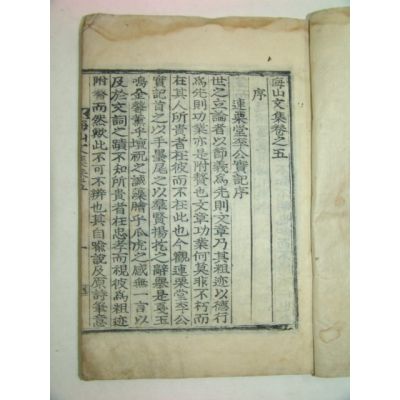 海山文集卷之五
序
連栗堂李公實記序
世之立論者以節義爲先則文章乃其粗迹以德行
爲先則功業亦是附贅也文章功業何莫非不朽而
在其人所貴者在彼而不在此也今觀連栗堂李公
實記首之以手墨尾之以羣賢揚扢之辭擧是戛玉
鳴金馨薰乎壇祝之誠藻繪乎瓜虎之感無一言以
及於文詞之蹟不知所貴者在忠孝而視彼爲粗迹
附贅而然歟此不可不辨也其自喩說及原詩筆意
海山文集卷五
一